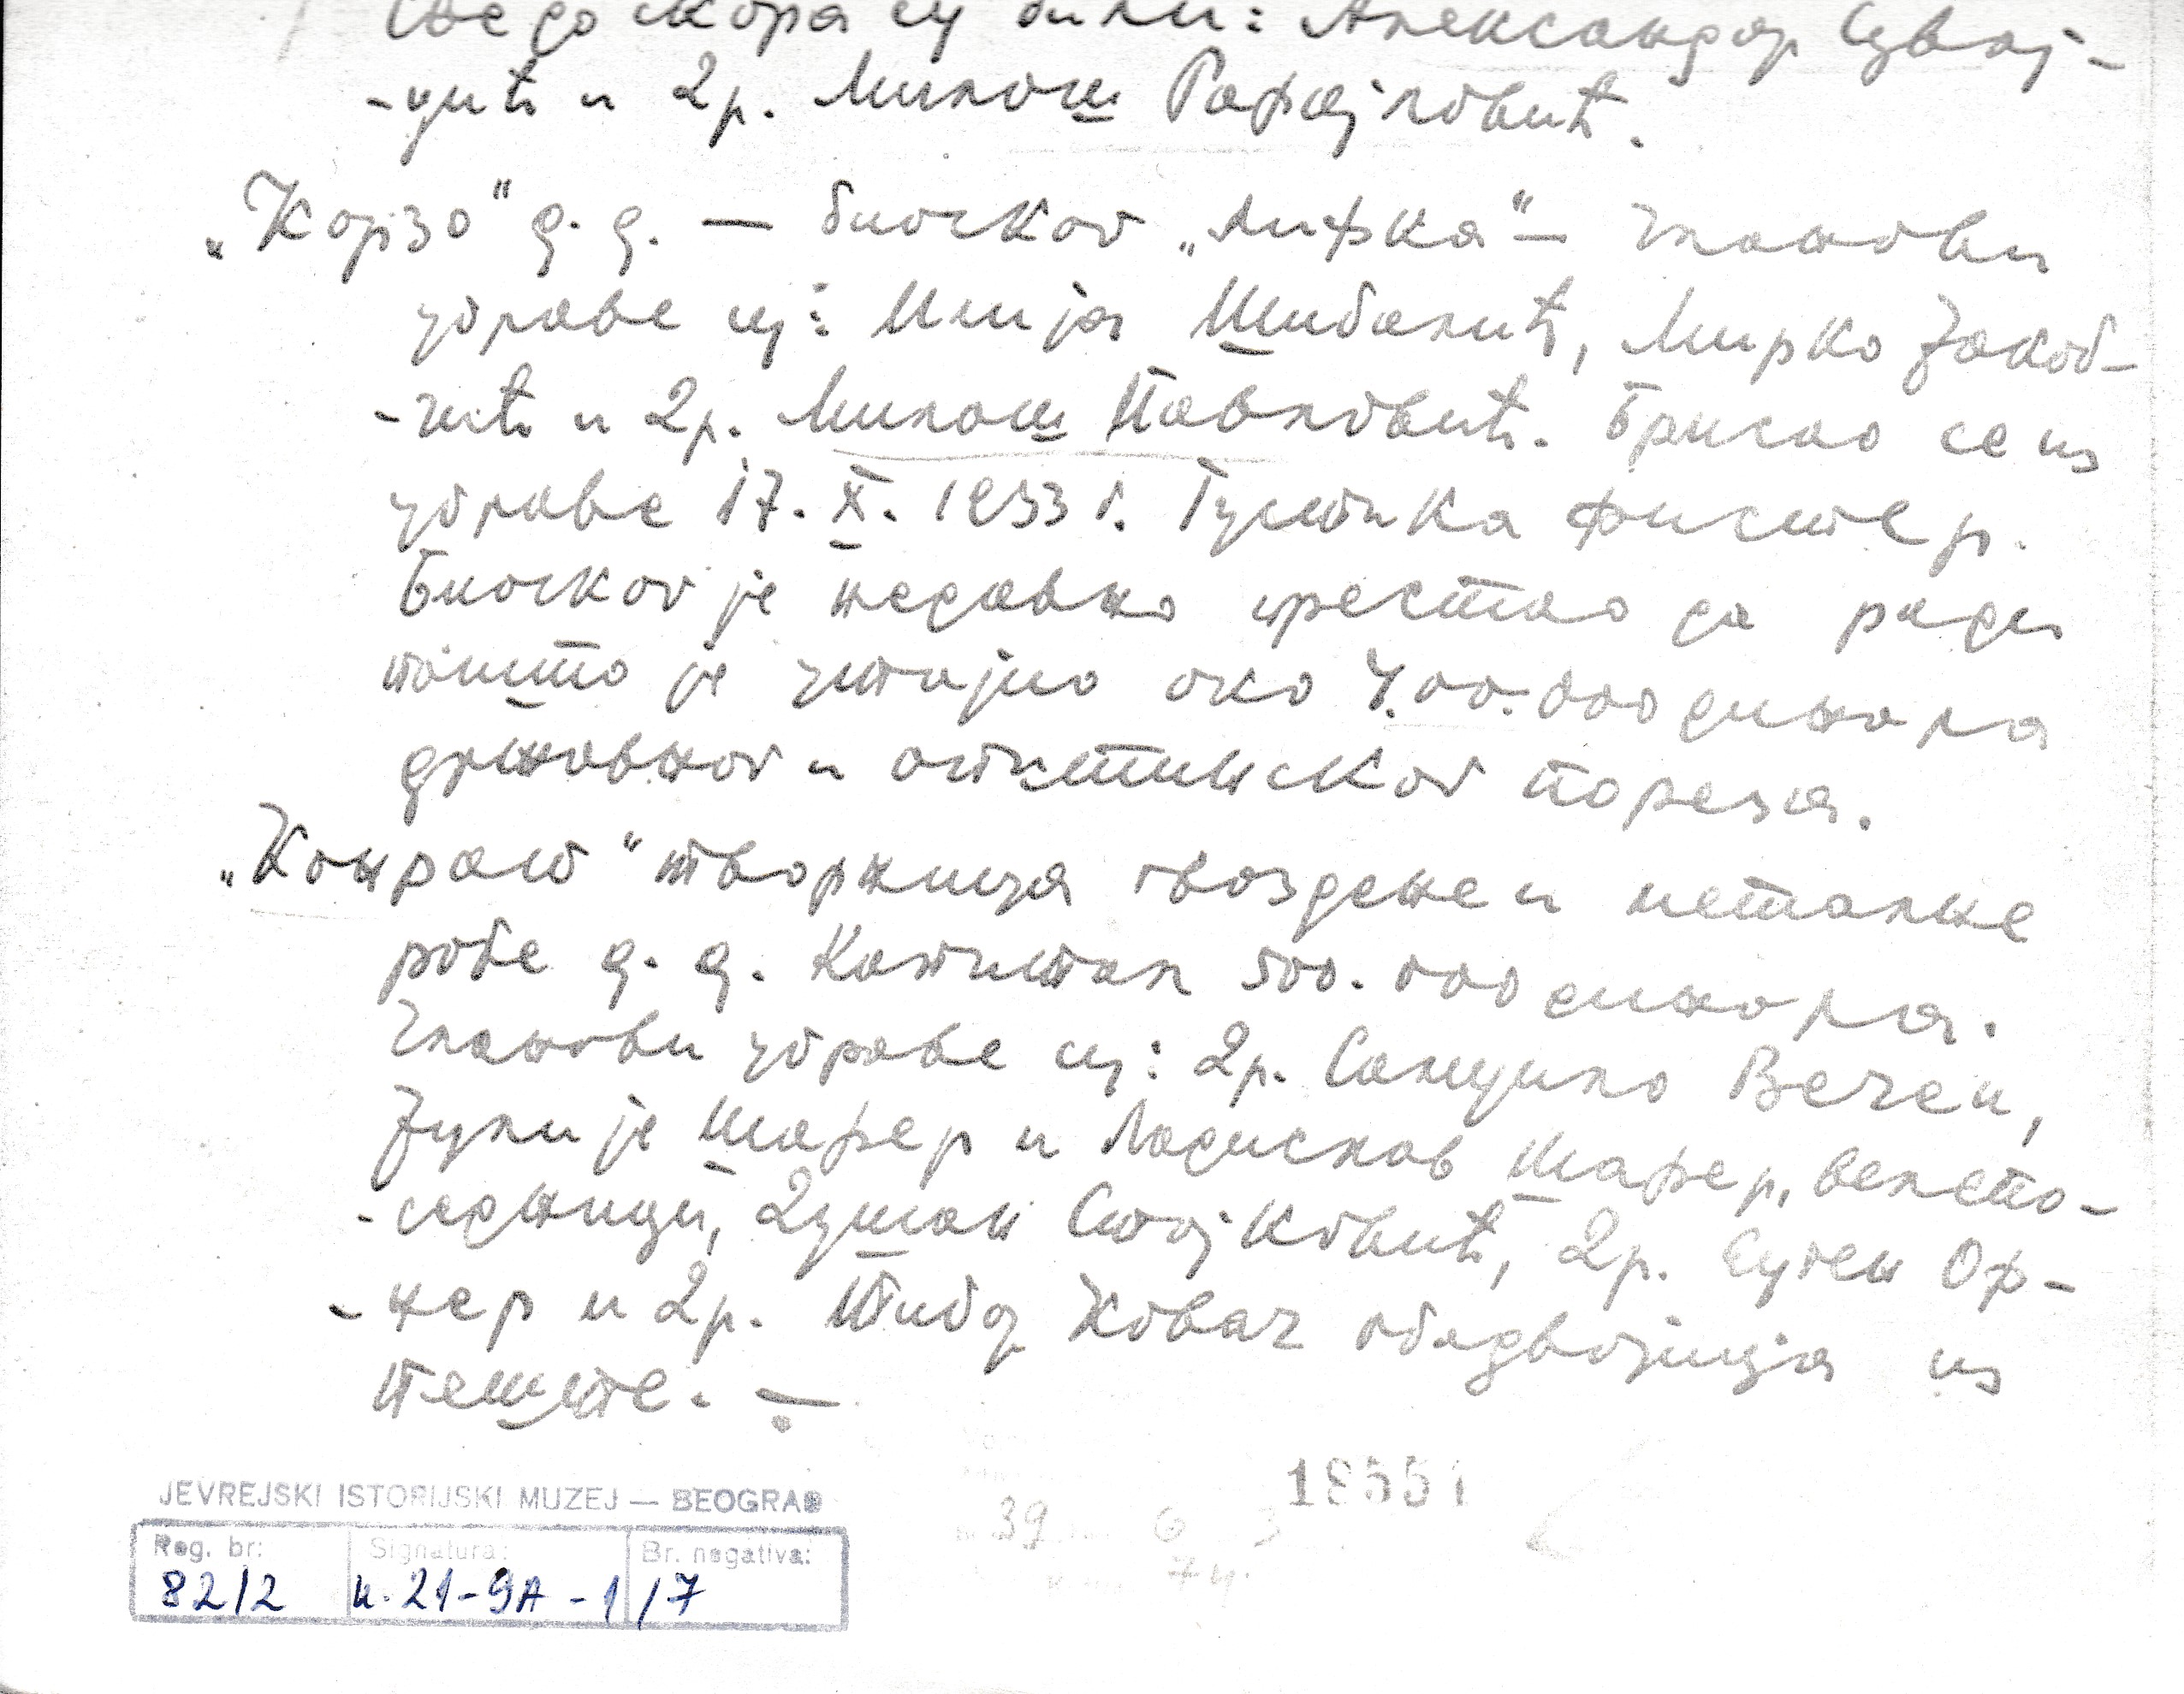 Све до скора су били: Александар Цвај-
-чић и Др. Милош Рафајловић.
„Корзо“ д. д. — биоскоп „Лифка“ — Чланови
управе су: Илија Шибалић, Мирко Јакоб-
-чић и Др. Милош Павловић. Брисао се из
управе 17. X. 1933 г. Густика Фистер.
Биоскоп је недавно престао да ради
пошто је дужан око 400.000 динара
државног и општинског пореза.
„Конраш“ творница гвоздене и металне
робе д. д. Капитал 500.000 динара.
Чланови управе су: Др. Самуило Вечеи,
Јулије Шафер и Ладислав Шафер, велепо-
-седници, Душан Стојковић, Др. Еуген Оф-
-нер и Др. Тибор Ковач обадвојица из
Пеште. —
18551
JEVREJSKI ISTORIJSKI MUZEJ — BEOGRAD
Reg. br: Signatura: Br. negativa:
82/2 к. 21-9A-1/7